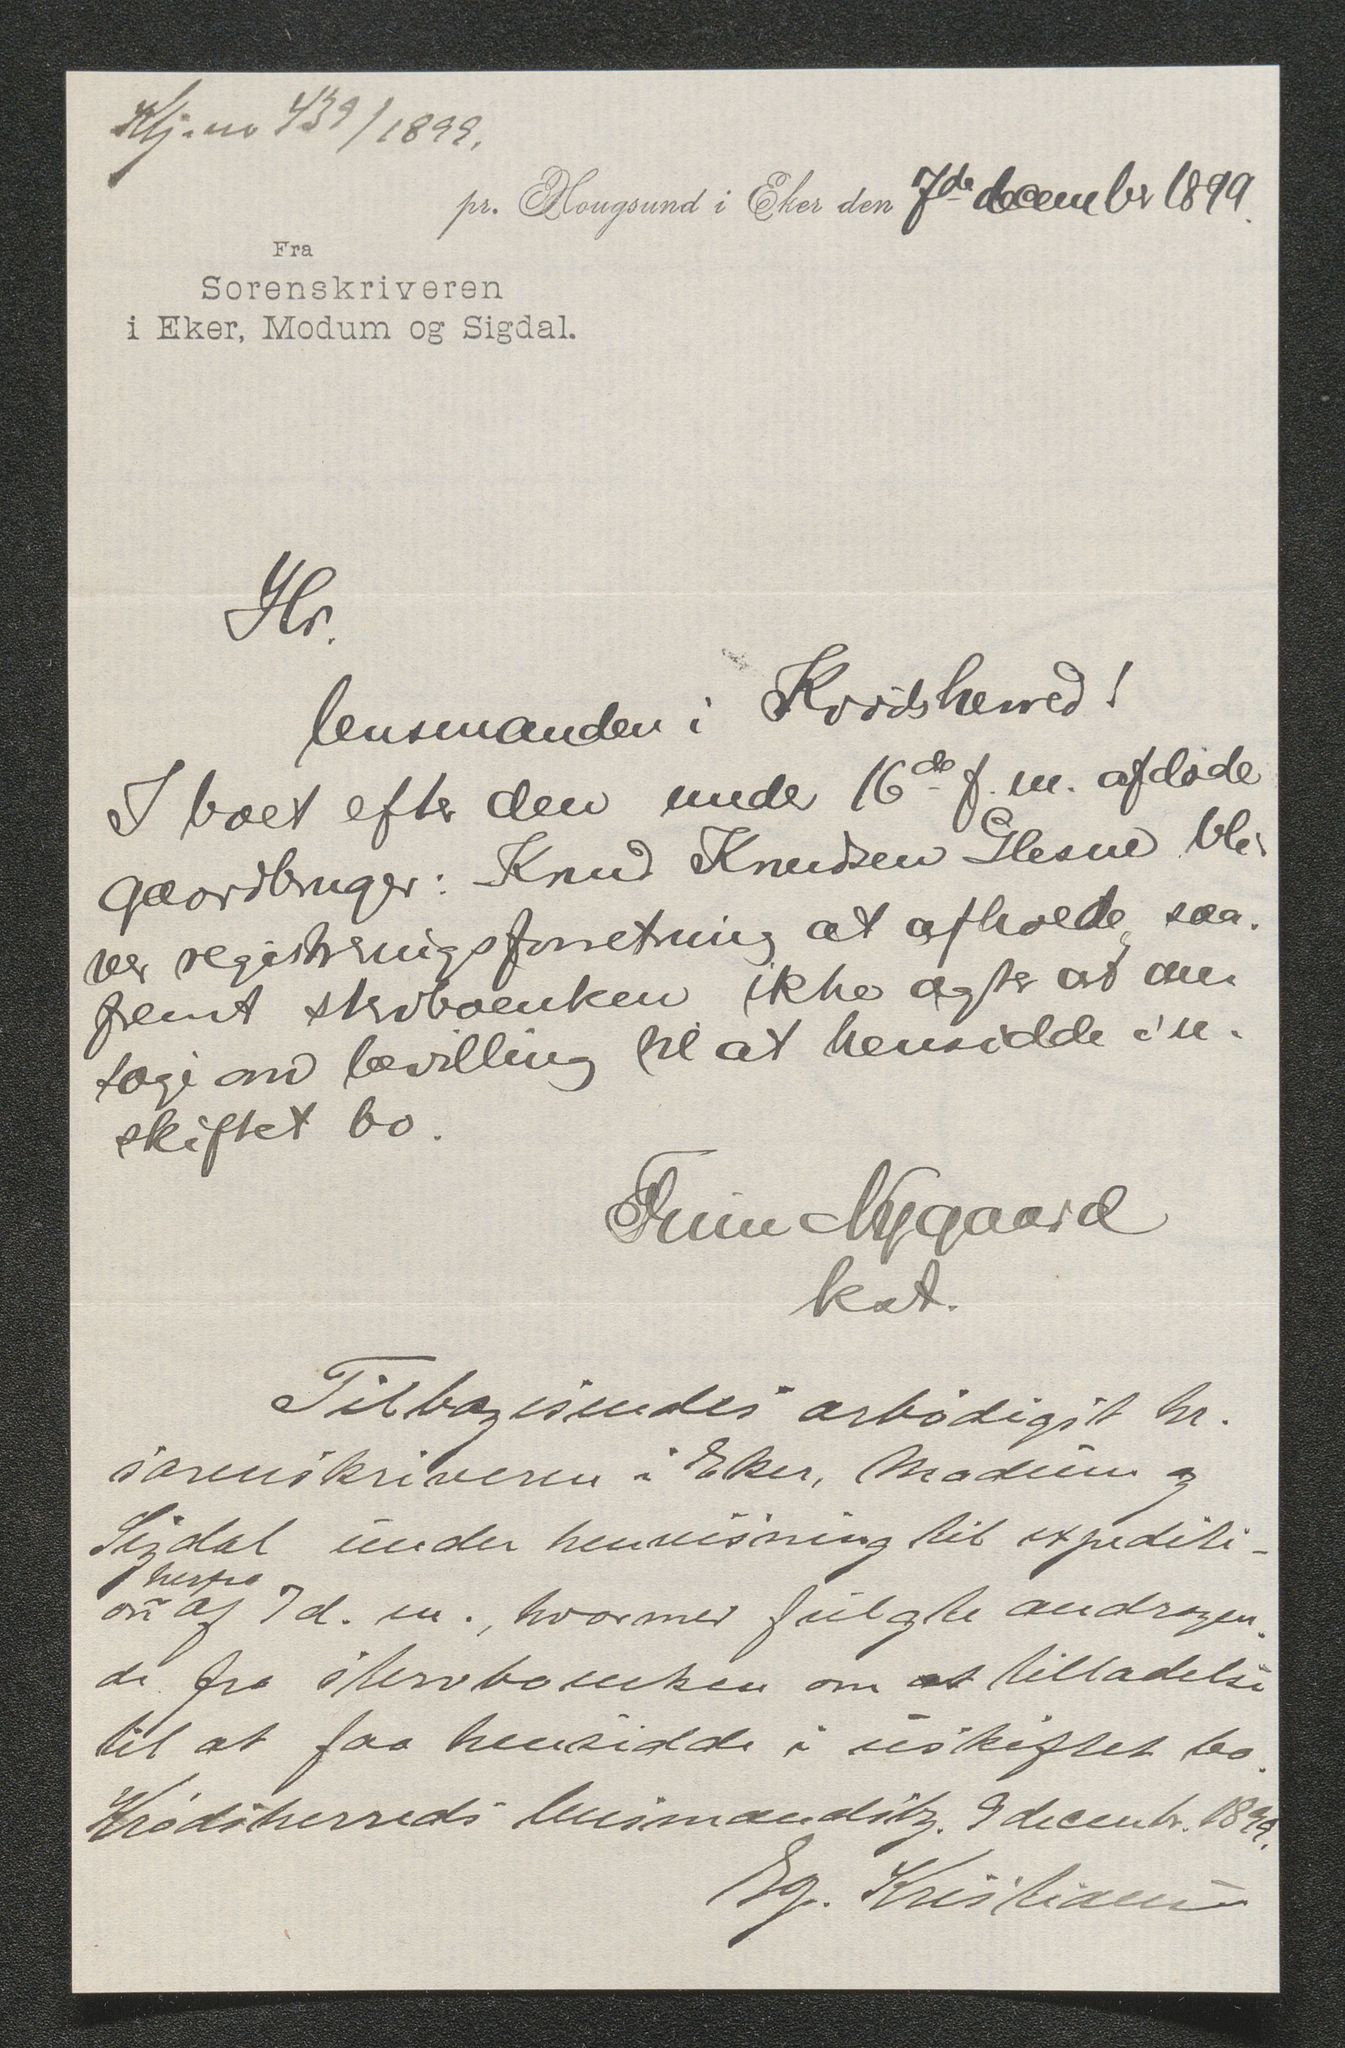 Kj. no 439/1899.
pr. Hougsund i Eker den 7de december 1899.
Fra
Sorenskriveren
i Eker, Modum og Sigdal.
Hr.
lensmanden i Krødsherred!
I boet efter den under 16de f. m. afdøde
gaardbruger: Knud Knudsen Glesne bli-
ver registreringsforretning at afholde, saa-
fremt stervboenken ikke agter at an-
søge om bevilling til at hensidde i u-
skiftet bo.
Nygaard
kst.
Tilbagesendes ærbødigst hr.
sorenskriveren i Eker, Modum og
Sigdal under henvisning til expediti-
on herfra af 7 d. m., hvormed fulgte andragen-
de fra stervboenken om at tilladelse
til at faa hensidde i uskiftet bo.
Krødsherreds lensmandsbg. 9 decembr. 1899.
Eg. Kristiansen